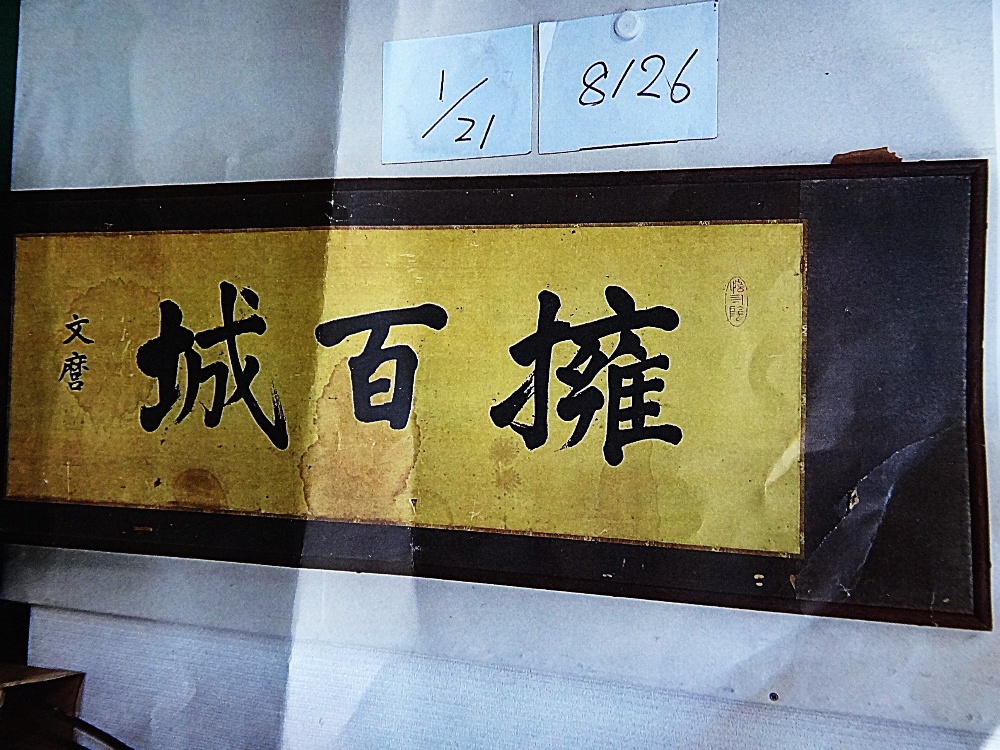 1/21
8126
擁百城
文麿